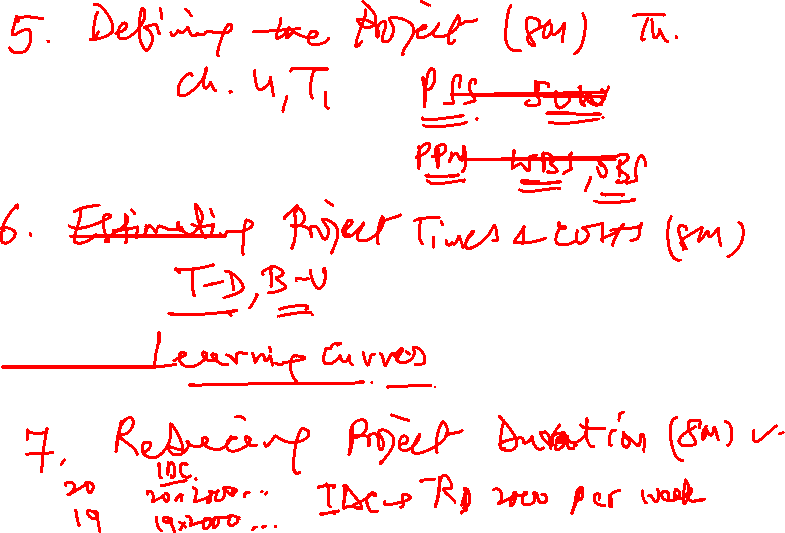 5. Defining the Project (8M) Th.
ch. 4, T1
PSS SOW
PPM WBS, OBS
6. Estimating Project Times & costs (8M)
T-D, B-U
Learning Curves
7. Reducing Project Duration (8M)
IDC
20 20x2000...
19 19x2000... IDC → Rs 2000 per week